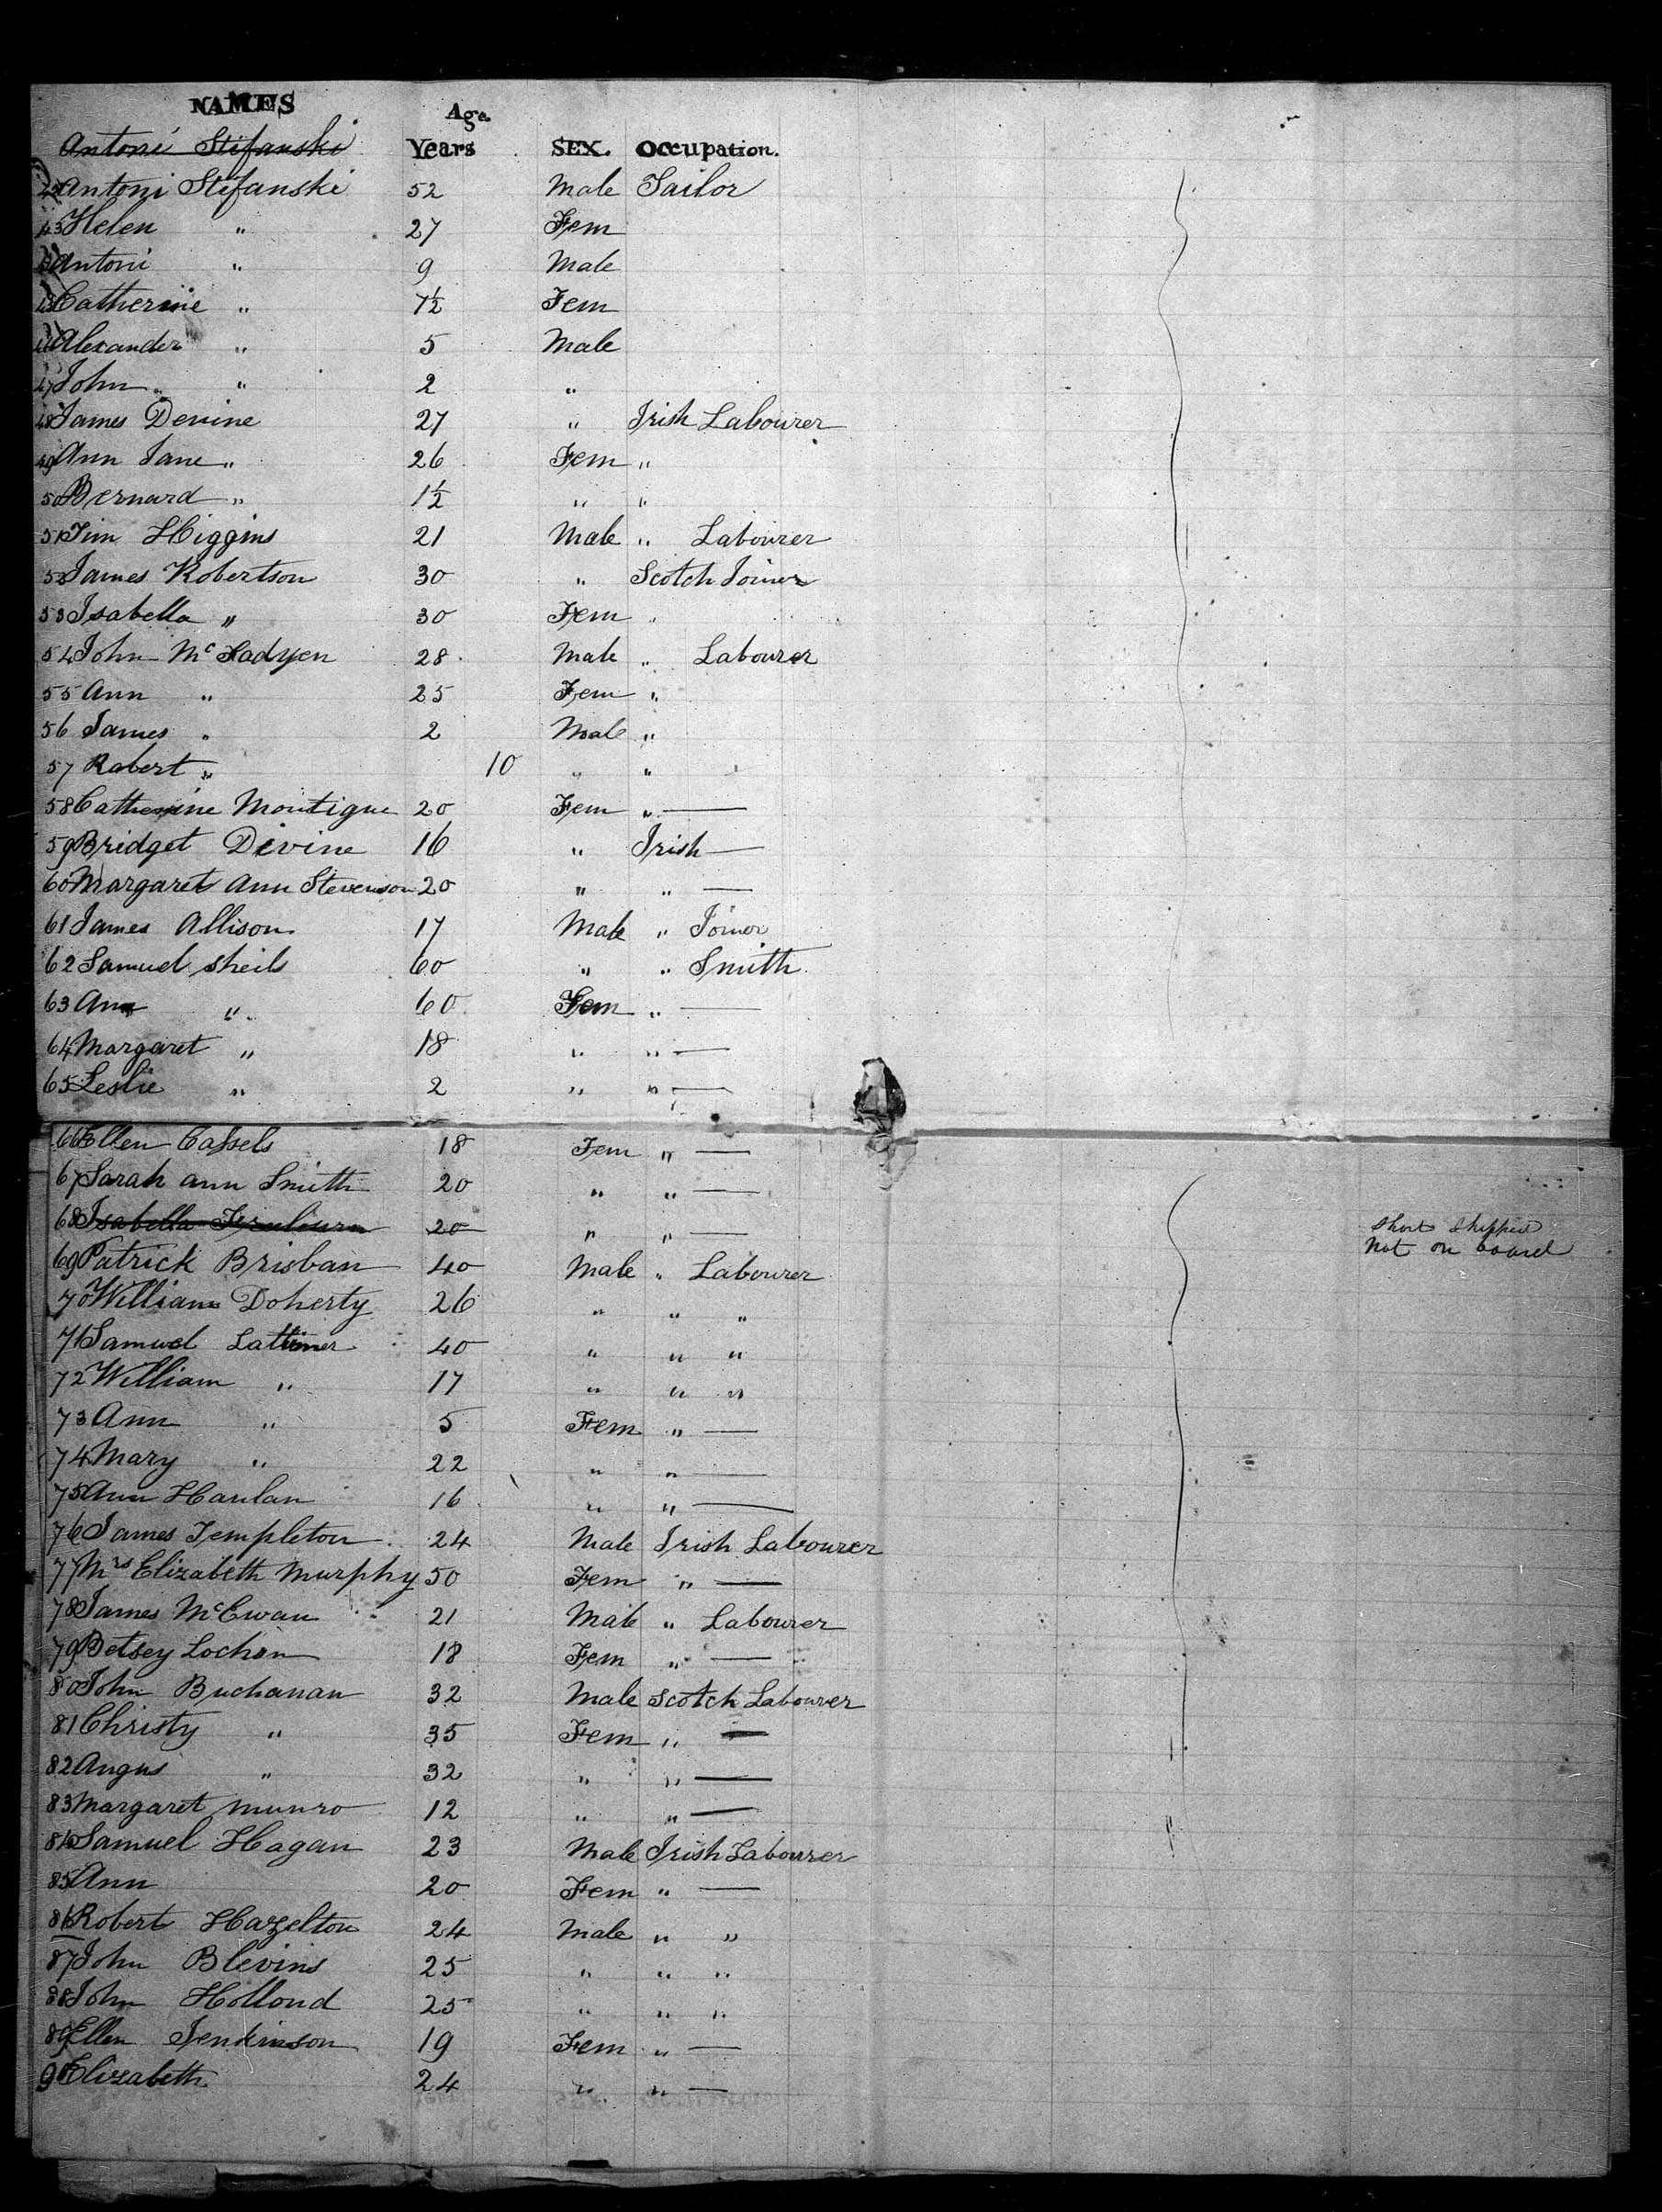 NAMES Age.
Antoni Stifanski Years SEX. Occupation.
42 Antoni Stifanski 52 Male Tailor
43 Helen " 27 Fem
44 Antoni " 9 Male
45 Catherine " 7½ Fem
46 Alexander " 5 Male
47 John " 2 "
48 James Devine 27 " Irish Labourer
49 Ann Jane " 26 Fem "
50 Bernard " 1½ " "
51 Jim Higgins 21 Male " Labourer
52 James Robertson 30 " Scotch Joiner
53 Isabella " 30 Fem "
54 John McFadyen 28 Male " Labourer
55 Ann " 25 Fem "
56 James " 2 Male "
57 Robert " 10 " "
58 Catherine Montigue 20 Fem " —
59 Bridget Divine 16 " Irish —
60 Margaret Ann Stevenson 20 " " —
61 James Allison 17 Male " Joiner
62 Samuel Sheils 60 " " Smith
63 Ann " 60 Fem " —
64 Margaret " 18 " " —
65 Leslie " 2 " " —
66 Ellen Cassels 18 Fem " —
67 Sarah Ann Smith 20 " " —
68 Isabella 20 " " — Short Shipped
69 Patrick Brisban 40 Male " Labourer Not on board
70 William Doherty 26 " " "
71 Samuel Lattimer 40 " " "
72 William " 17 " " "
73 Ann " 5 Fem " —
74 Mary " 22 " " —
75 Ann Hanlan 16 " " —
76 James Templeton 24 Male Irish Labourer
77 Mrs Elizabeth Murphy 50 Fem " —
78 James McEwan 21 Male " Labourer
79 Betsey Lochan 18 Fem " —
80 John Buchanan 32 Male Scotch Labourer
81 Christy " 35 Fem " —
82 Angus " 32 " " —
83 Margaret Munro 12 " " —
84 Samuel Hagan 23 Male Irish Labourer
85 Ann 20 Fem " —
86 Robert Hazelton 24 Male " "
87 John Blevins 25 " " "
88 John Hollond 25 " " "
89 Ellen Jenkinson 19 Fem " —
90 Elizabeth 24 " " —